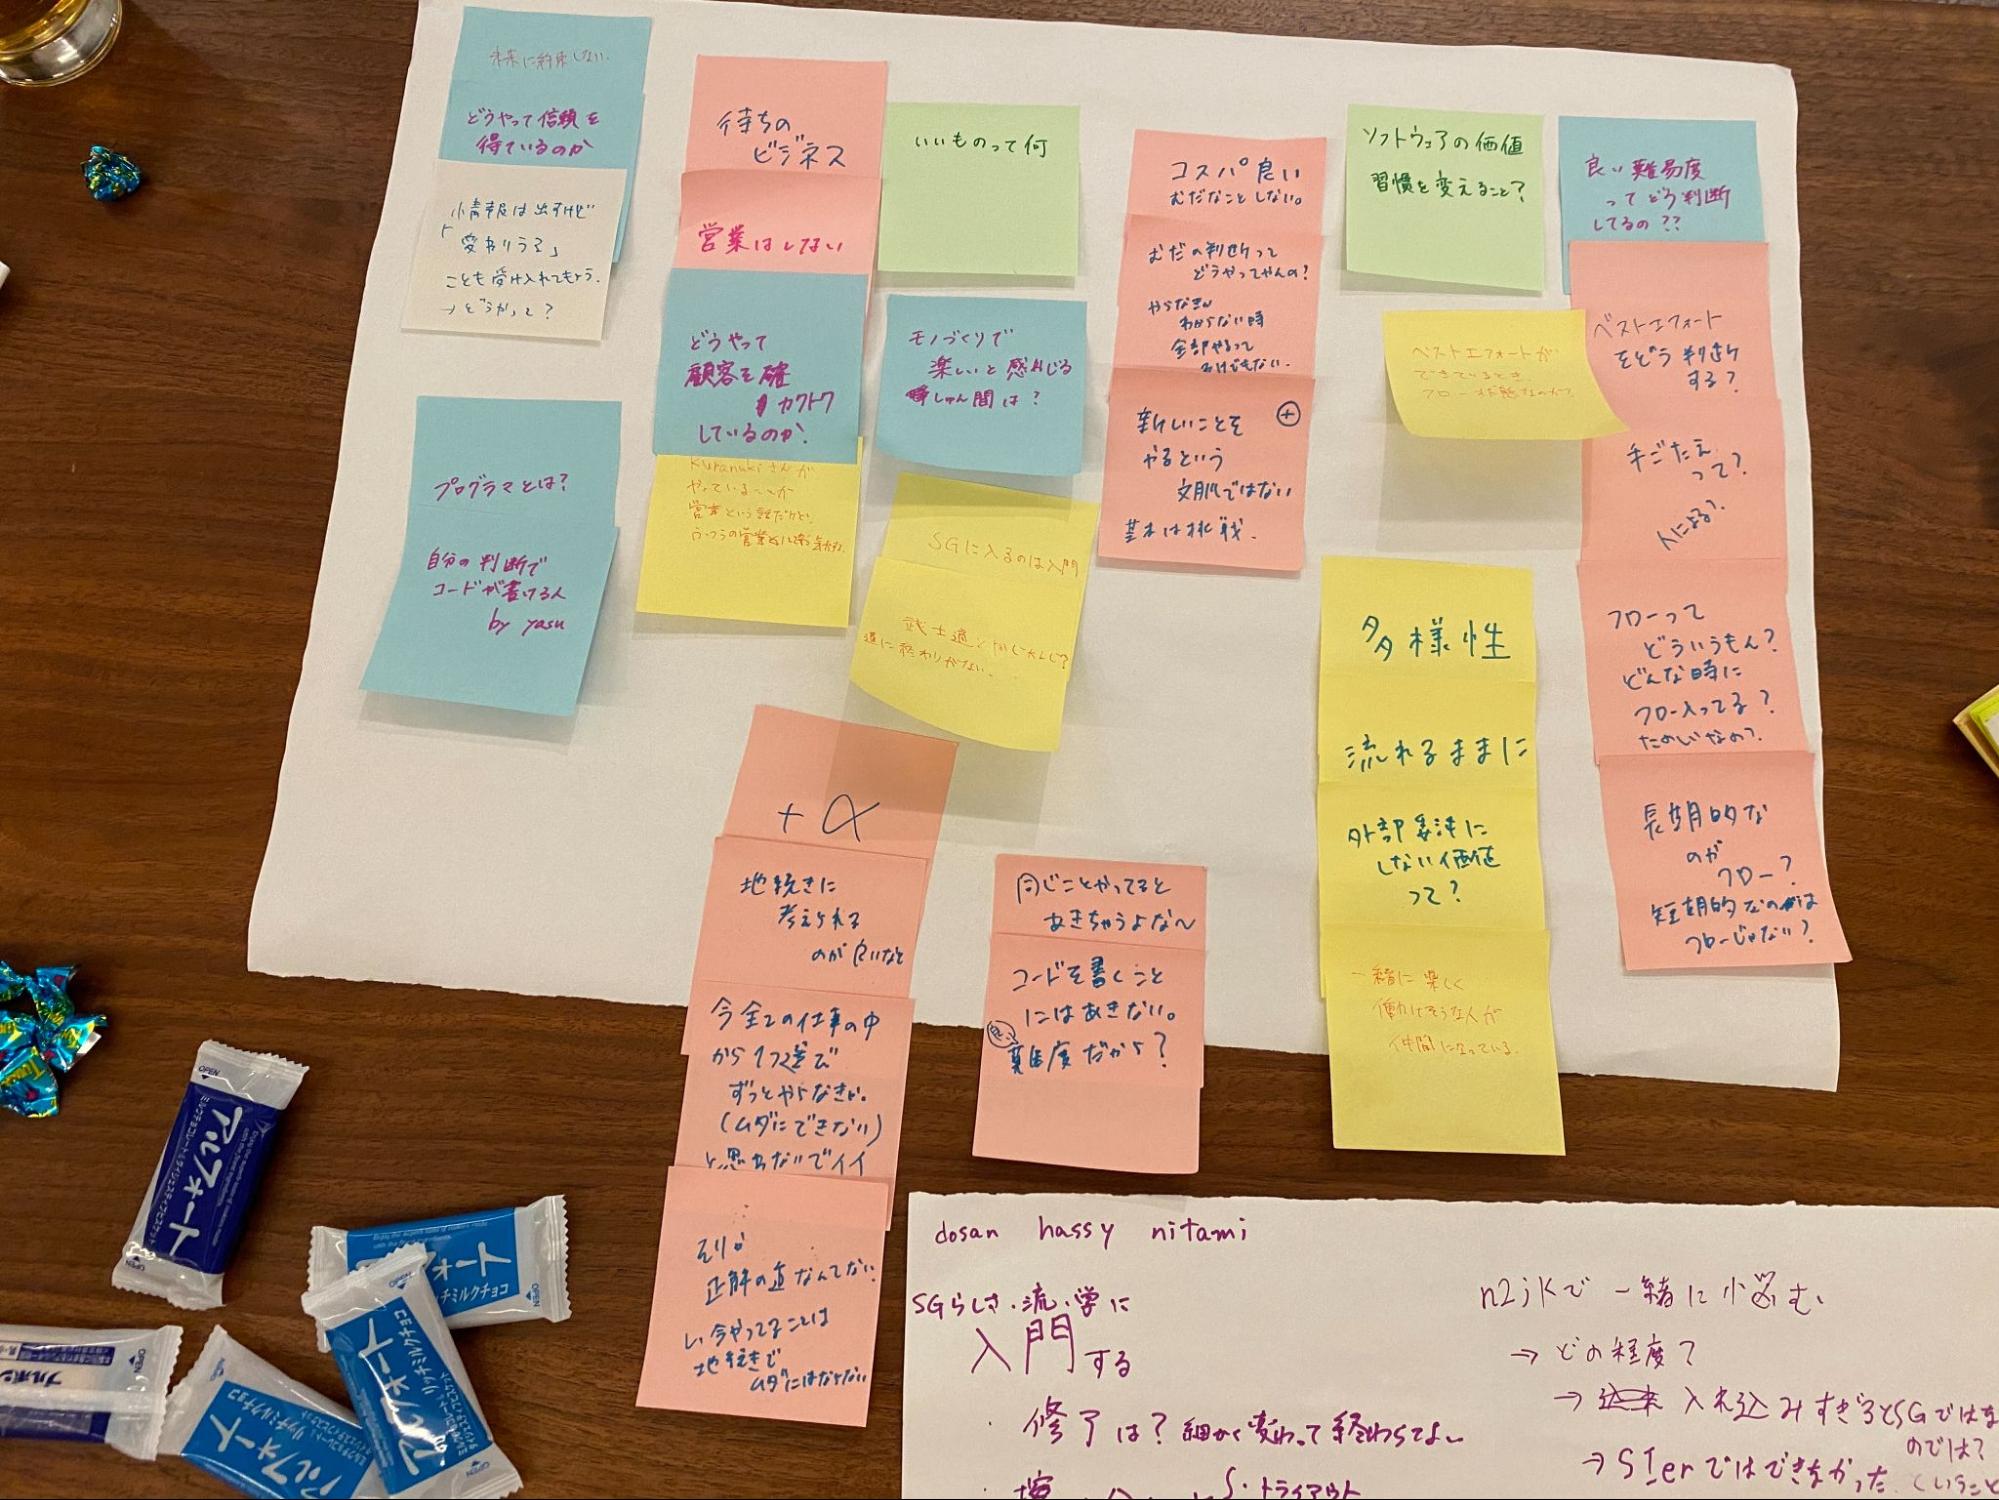 未来に約束しない。
どうやって信頼を
得ているのか
情報は出すけど
「変わりうる」
ことも受け入れてもらう。
→どうやって?
プログラマとは?
自分の判断で
コードが書ける人
by yasu
待ちの
ビジネス
営業はしない
どうやって
顧客を確
カクトク
しているのか?
Kuranukiさんが
やっていることが
営業という
いいものって何
モノづくりで
楽しいと感じる
しゅん間は?
SGに入るのは入門
武士道
道に終わりがない。
コスパ良い
むだなことしない。
むだの判断って
どうやってやんの?
やらなきゃ
わからない時
全部やるって
わけでもない。
新しいことを ⊕
やるという
文脈ではない
基本は挑戦。
ソフトウェアの価値
習慣を変えること?
ベストエフォートが
できているとき、
フロー状態なのか?
良い難易度
ってどう判断
してるの??
ベストエフォート
をどう判断
する?
手ごたえ
って?
人による?
フローって
どういうもん?
どんな時に
フロー入ってる?
たのしいなの?
長期的な
のが
フロー?
短期的なのは
フローじゃない?
多様性
流れるままに
外部委託に
しない価値
って?
一緒に楽しく
働けそうな人が
仲間になっている。
+α
地続きに
考えられる
のが良いなと
今全ての仕事の中
から1つ選び
ずっとやらなきゃ。
(ムダにできない)
と思わないでイイ
正解の道なんてない。
今やってることは
地続きで
ムダにはならない
同じことやってると
あきちゃうよな〜
コードを書くこと
にはあきない。
良い
難易度だから?
dosan hassy nitami
SGらしさ・流・学に
入門する
・修了は? 細かく変わって終わらてよい
S・トライアウト
n2jkで一緒に悩む
→どの程度?
→ 入れ込みすぎるとSGではな
のでは?
→SIerではできなかった
ということ
OPEN
アルフォート
ミルクチョコレート&ダイジェスティブビスケット
アルフォート
リッチミルクチョコ
ブルボン
OPEN
アルフォート
リッチミルクチョコ
OPEN